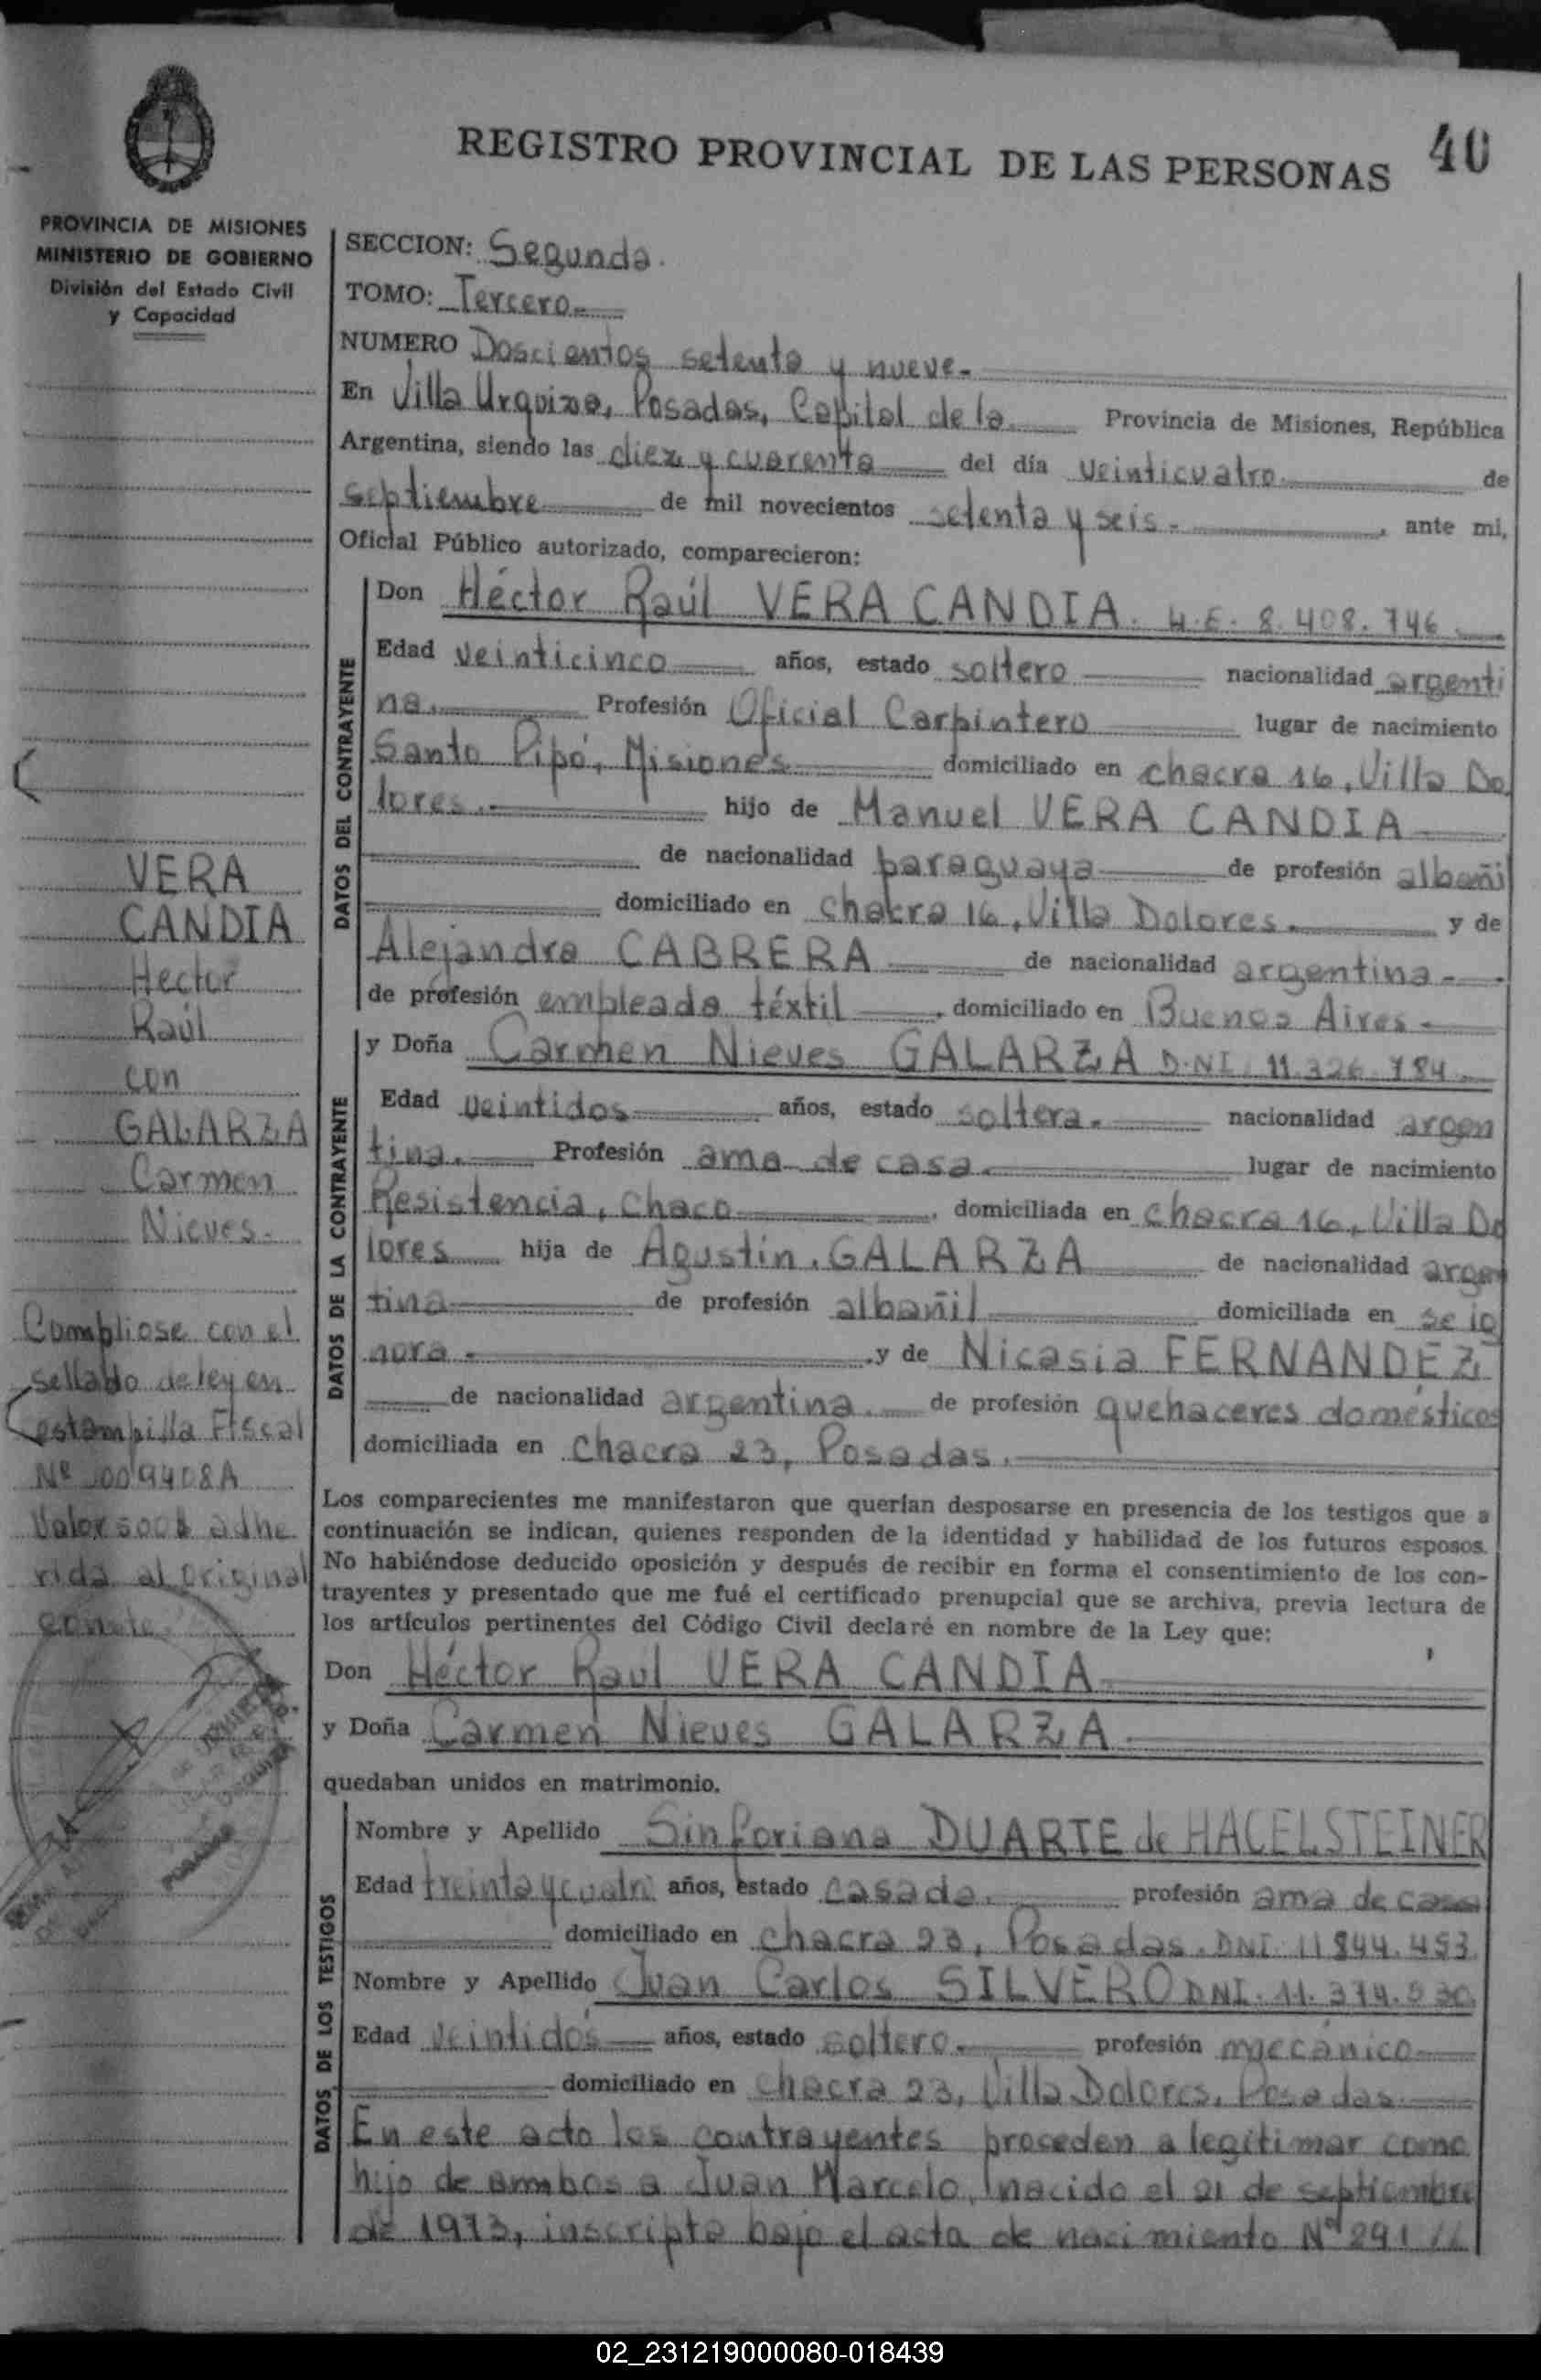 REGISTRO PROVINCIAL DE LAS PERSONAS
40
PROVINCIA DE MISIONES
MINISTERIO DE GOBIERNO
División del Estado Civil
y Capacidad
SECCION: Segunda.
TOMO: Tercero.
NUMERO Doscientos setenta y nueve.
En Villa Urquiza, Posadas, Capital de la Provincia de Misiones, República
Argentina, siendo las diez y cuarenta del día veinticuatro de
septiembre de mil novecientos setenta y seis. , ante mi,
Oficial Público autorizado, comparecieron:
DATOS DEL CONTRAYENTE
Don Héctor Raúl VERA CANDIA. L.E. 8.408.746
Edad veinticinco años, estado soltero nacionalidad argenti
na. Profesión Oficial Carpintero lugar de nacimiento
Santo Pipó, Misiones domiciliado en chacra 16, Villa Do
lores. hijo de Manuel VERA CANDIA
de nacionalidad paraguaya de profesión albañil
domiciliado en Chacra 16, Villa Dolores. y de
Alejandra CABRERA de nacionalidad argentina.
de profesión empleada téxtil , domiciliado en Buenos Aires.
DATOS DE LA CONTRAYENTE
y Doña Carmen Nieves GALARZA D.N.I. 11.326.784
Edad veintidos años, estado soltera. nacionalidad argen
tina. Profesión ama de casa. lugar de nacimiento
Resistencia, Chaco , domiciliada en chacra 16, Villa Do
lores hija de Agustin, GALARZA de nacionalidad argen
tina de profesión albañil domiciliada en se ig
nora . , y de Nicasia FERNANDEZ
de nacionalidad argentina. de profesión quehaceres domésticos
domiciliada en Chacra 23, Posadas.
Los comparecientes me manifestaron que querían desposarse en presencia de los testigos que a
continuación se indican, quienes responden de la identidad y habilidad de los futuros esposos.
No habiéndose deducido oposición y después de recibir en forma el consentimiento de los con-
trayentes y presentado que me fué el certificado prenupcial que se archiva, previa lectura de
los artículos pertinentes del Código Civil declaré en nombre de la Ley que:
Don Héctor Raul VERA CANDIA
y Doña Carmen Nieves GALARZA
quedaban unidos en matrimonio.
DATOS DE LOS TESTIGOS
Nombre y Apellido Sinforiana DUARTE de HACELSTEINER
Edad treinta y cuatro años, estado casada. profesión ama de casa
domiciliado en chacra 23, Posadas. DNI 11844.453
Nombre y Apellido Juan Carlos SILVERO DNI. 11.374.930
Edad veintidós años, estado soltero. profesión mecánico
domiciliado en Chacra 23, Villa Dolores, Posadas
En este acto los contrayentes proceden a legitimar como
hijo de ambos a Juan Marcelo, nacido el 21 de septiembre
de 1973, inscripto bajo el acta de nacimiento Nº 291
VERA
CANDIA
Hector
Raúl
con
GALARZA
Carmen
Nieves.
Cumpliose con el
sellado de ley en
estampilla Fiscal
Nº 009408A
Valor 500$ adhe
rida al original
POSADAS
02_231219000080-018439